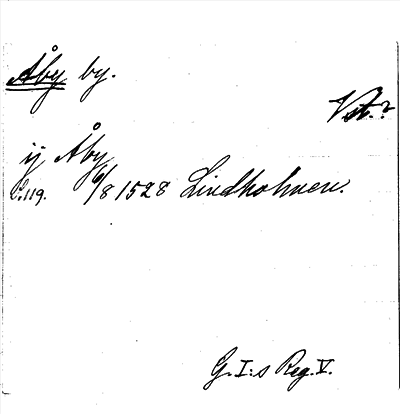 Åby by.
Vst.?
ij Åby
s.119. 6/8 1528 Lindholmen.
G. I:s Reg. V.